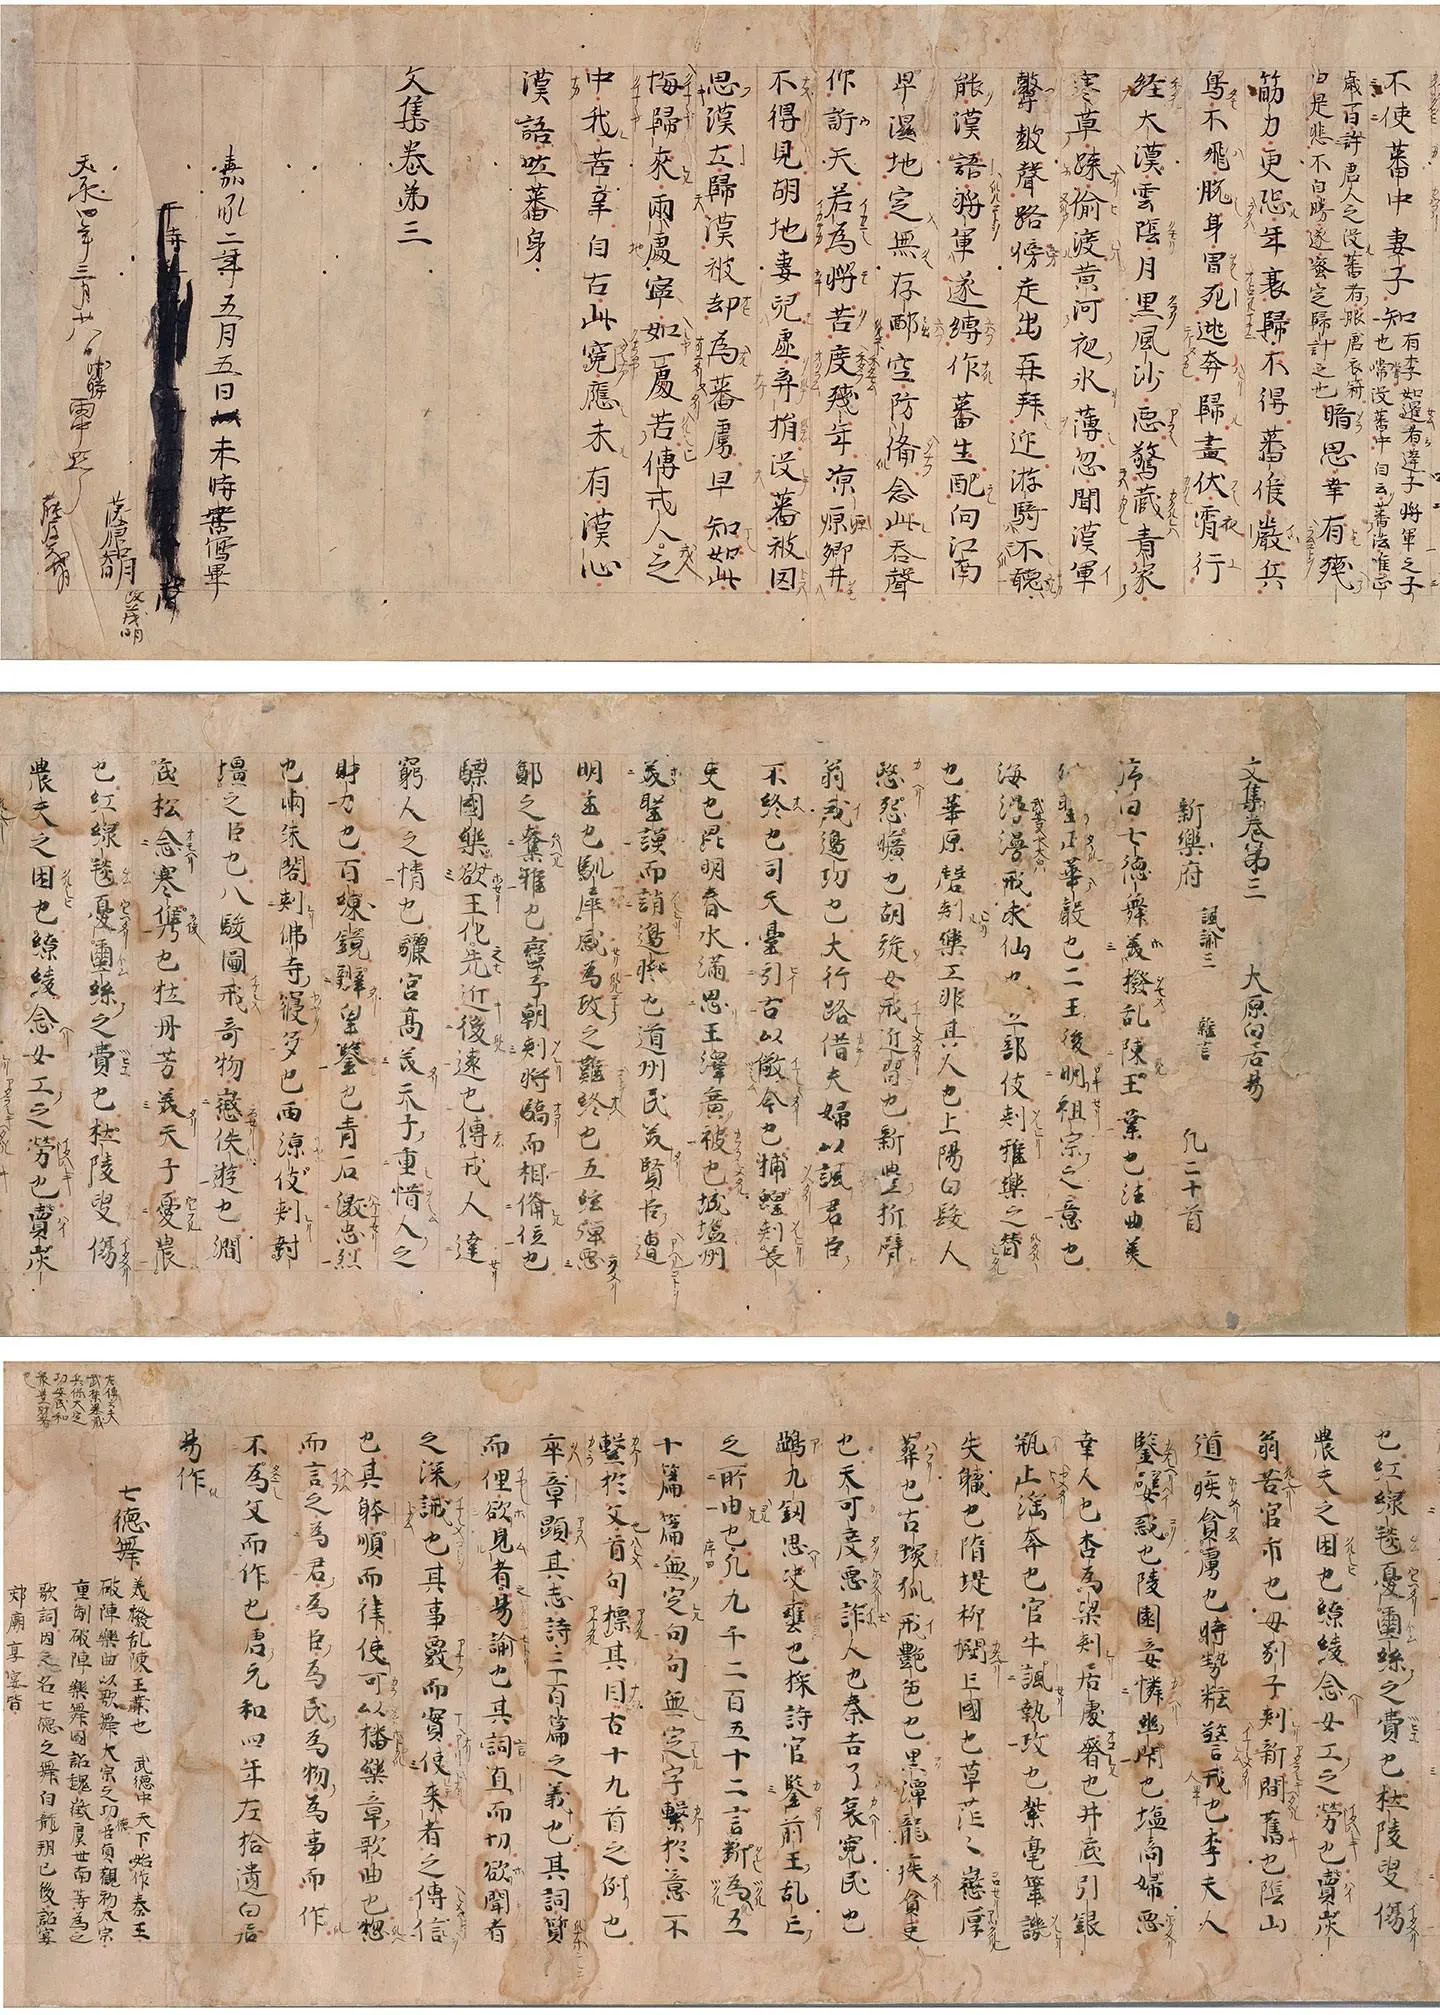 不使蕃中妻子知
有李如暹者蓬子將軍之子
也常没蕃中自云蕃法唯正
歳一日許唐人之没蕃者服唐衣冠
由是悲不自勝遂蜜定歸計之也
暗思幸有殘
筋力更恐年衰歸不得蕃候嚴兵
鳥不飛脱身冒死逃奔歸晝伏宵行
経大漠雲陰月黒風沙惡驚藏青冢
寒草踈偷渡黄河夜氷薄忽聞漢軍
鼙皷聲路傍走出再拜迎游騎不聴
能漢語將軍遂縛作蕃生配向江南
卑濕地定無存䘏空防備念此呑聲
仰訴天若為辛苦度殘年凉原郷井
不得見胡地妻兒虚弃捐没蕃被囚
思漢土歸漢被却為蕃虜早知如此
悔歸來兩處寧如一處苦傳戎人之
中我苦辛自古此寃應未有漢心
漢語吐蕃身
文集巻第三
嘉承二年五月五日未時書寫畢
天永四年三月廿八日點了
藤原茂明
改茂明
文集巻第三 太原白居易
新樂府 諷諭三 雜言 凡二十首
序曰七德舞美撥乱陳王業也法曲美
列聖正華聲也二王後明祖宗之意也
海漫漫戒求仙也立部伎刺雅樂之替
也華原磬刺樂工非其人也上陽白髮人
愍怨曠也胡旋女戒近習也新豐折臂
翁戒邊功也大行路借夫婦以諷君臣
不終也司天臺引古以儆今也捕蝗刺長
吏也昆明春水滿思王澤廣被也城塩州
美聖謨而誚邊將也道州民美賢臣遭
明主也馴犀感為政之難終也五絃彈惡
鄭之奪雅也蠻子朝刺將驕而相俻位也
驃國樂欲王化先近後遠也傳戎人達
窮人之情也驪宮高美天子重惜人之
財力也百練鏡辯皇鑒也青石激忠烈
也兩朱閣刺佛寺寖多也西凉伎刺封
壃之臣也八駿圖戒奇物懲佚遊也澗
底松念寒儁也牡丹芳美天子憂農
也紅線毯憂蠶絲之費也杜陵叟傷
農夫之困也繚綾念女工之勞也賣炭
也紅線毯憂蠶絲之費也杜陵叟傷
農夫之困也繚綾念女工之勞也賣炭
翁苦官市也母別子刺新間舊也陰山
道疾貪虜也時勢粧警戒也李夫人
鑒嬖惑也陵園妾憐幽閇也塩商婦惡
幸人也杏為梁刺居處奢也井底引銀
瓶止淫奔也官牛諷執政也紫毫筆誡
失職也隋堤柳憫亡國也草茫々懲厚
葬也古塚狐戒艶色也黒潭龍疾貪吏
也天可度惡詐人也秦吉了哀寃民也
鵶九劔思决壅也採詩官鑒前王乱亡
之所由也凡九千二百五十二言断為五
十篇篇無定句句無定字繫於意不
繫於文首句標其目古十九首之例也
卒章顯其志詩三百篇之義也其詞質
而俚欲見者易諭也其詞直而切欲聞者
之深誡也其事覈而實使来者之傳信
也其躰順而律使可以播樂章歌曲也惣
而言之為君為臣為民為物為事而作
不為文而作也唐元和四年左拾遺白居
易作
左傳云夫
武禁暴戢
兵保大定
功安民和
衆豊財者
也
七德舞
美撥乱陳王業也 武德中天下始作秦王
破陣樂曲以歌舞太宗之功德貞觀初太宗
重制破陣樂舞圖詔魏徴虞世南等為之
歌詞因之名七德之舞自龍朔已後詔宴
郊廟享宴皆